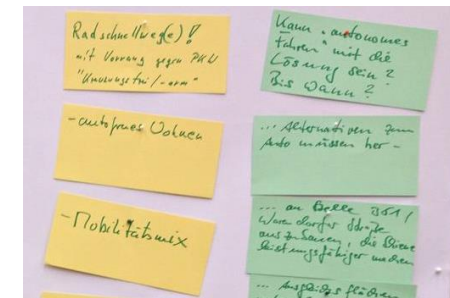 Radschnellweg(e)!
mit Vorrang gegen PKW
"kreuzungsfrei/-arm"
- autofreies Wohnen
- Mobilitätsmix
Kann "autonomes
Fahren" mit die
Lösung sein?
Bis wann?
... Alternativen zum
Auto müssen her -
... an B
Warendorfer Straße
auszubauen, die Str
leistungsfähiger machen
... Ausgleichsflächen